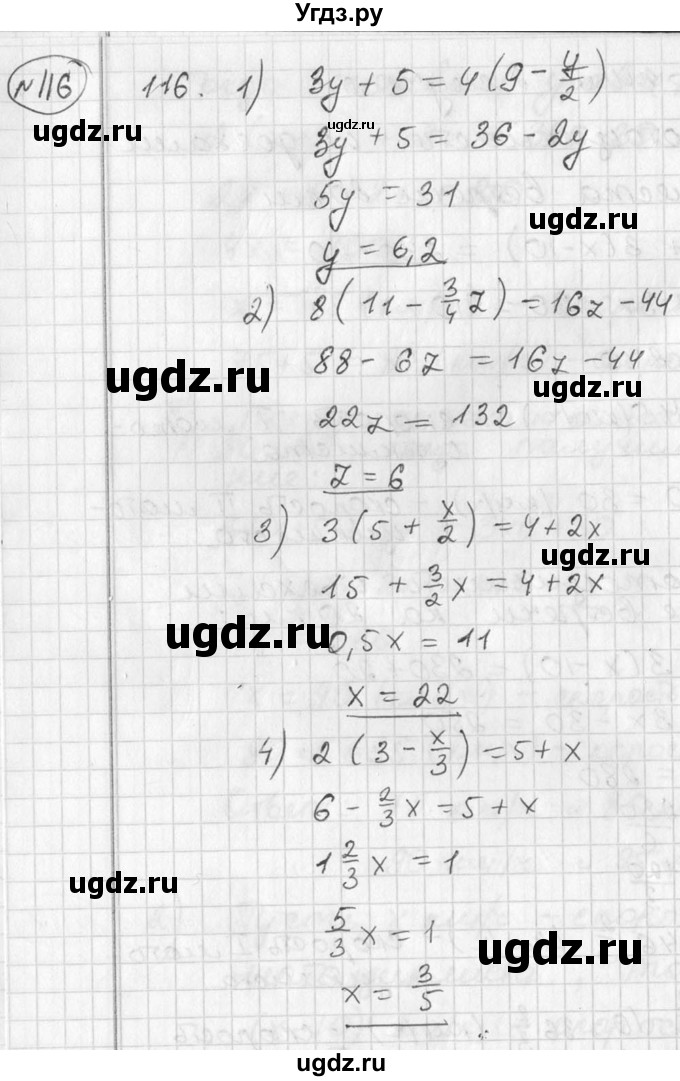 Угдз.ру
№116 116. 1) 3y + 5 = 4(9 - y/2)
ugdz.ru
3y + 5 = 36 - 2y
5y = 31
ugdz.ru
y = 6,2
2) 8(11 - 3/4 z) = 16z - 44
ugdz.ru
88 - 6z = 16z - 44
ugdz.ru
22z = 132
z = 6
3) 3(5 + x/2) = 4 + 2x
ugdz.ru
15 + 3/2 x = 4 + 2x
ugdz.ru
0,5x = 11
x = 22
4) 2(3 - x/3) = 5 + x
6 - 2/3 x = 5 + x
1 2/3 x = 1
ugdz.ru
5/3 x = 1
ugdz.ru
x = 3/5
ugdz.ru